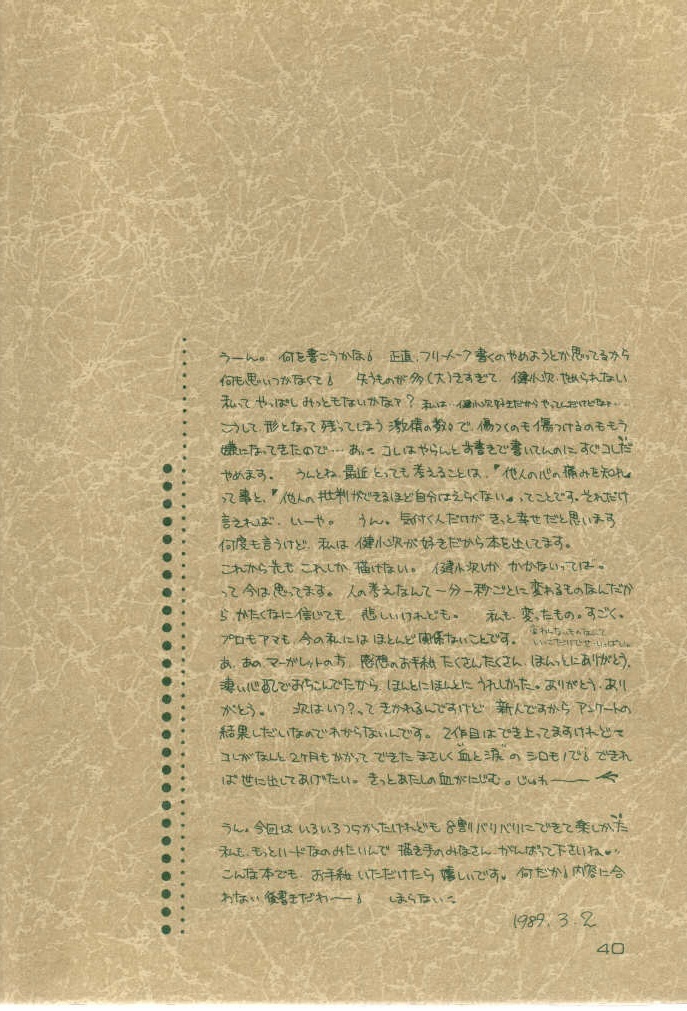 うーん。 何を書こうかな 正直、フリートーク書くのやめようとか思ってるから
何も思いつかなくて 失うものが多(大)きすぎて 健小次、やめられない
私って やっぱし みっともないかなァ? 私は…健小次好きだからやってんだけどなァ…
こうして 形となって 残ってしまう 激情の数々で、傷つくのも傷つけるのももう
嫌になってきたので… あ、コレはやらんと お書きで書いてんのに すぐコレだ
やめます。 うんとね、最近とっても考えることは、『他人の心の痛みを知れ』
って事と、『他人の批判ができるほど自分はえらくない』ってことです。それだけ
言えれば、いーや。 うん。 気付く人だけが きっと幸せだと思います
何度も言うけど、私は 健小次が 好きだから本を出してます。
これから先も これしか 描けない。 健小次しか かかないっては。
って 今は思ってます。 人の考えなんて 一分一秒ごとに 変わるものなんだか
ら かたくなに信じても 悲しいけれども。 私も 変ったもの。すごく。
プロもアマも、今の私には ほとんど関係ないことです。
あ、あの マーガレットの方、感想のお手紙 たくさんたくさん ほんっとにありがとう。
凄い心配でおちこんでたから、ほんとにほんとに うれしかった。ありがとう、あり
がとう。 次はいつ?って きかれるんですけど 新人ですから アンケートの
結果しだいなので わからないんです。 2作目は でき上ってますけれど
コレがなんと 2ケ月もかかって できた まさしく"血と涙"の シロモノで できれ
ば 世に出してあげたい。 きっとあたしの血がにじむ。じゅわ——
うん。今回は いろいろ つらかったけれども 8割バリバリに できて 楽しかった
私も、もっとハードなのみたいんで 描き手のみなさん がんばって下さいね
こんな本でも、お手紙 いただけたら 嬉しいです。 何だか 内容に合
わない 後書きだわ—— しまらない
1989. 3. 2
40